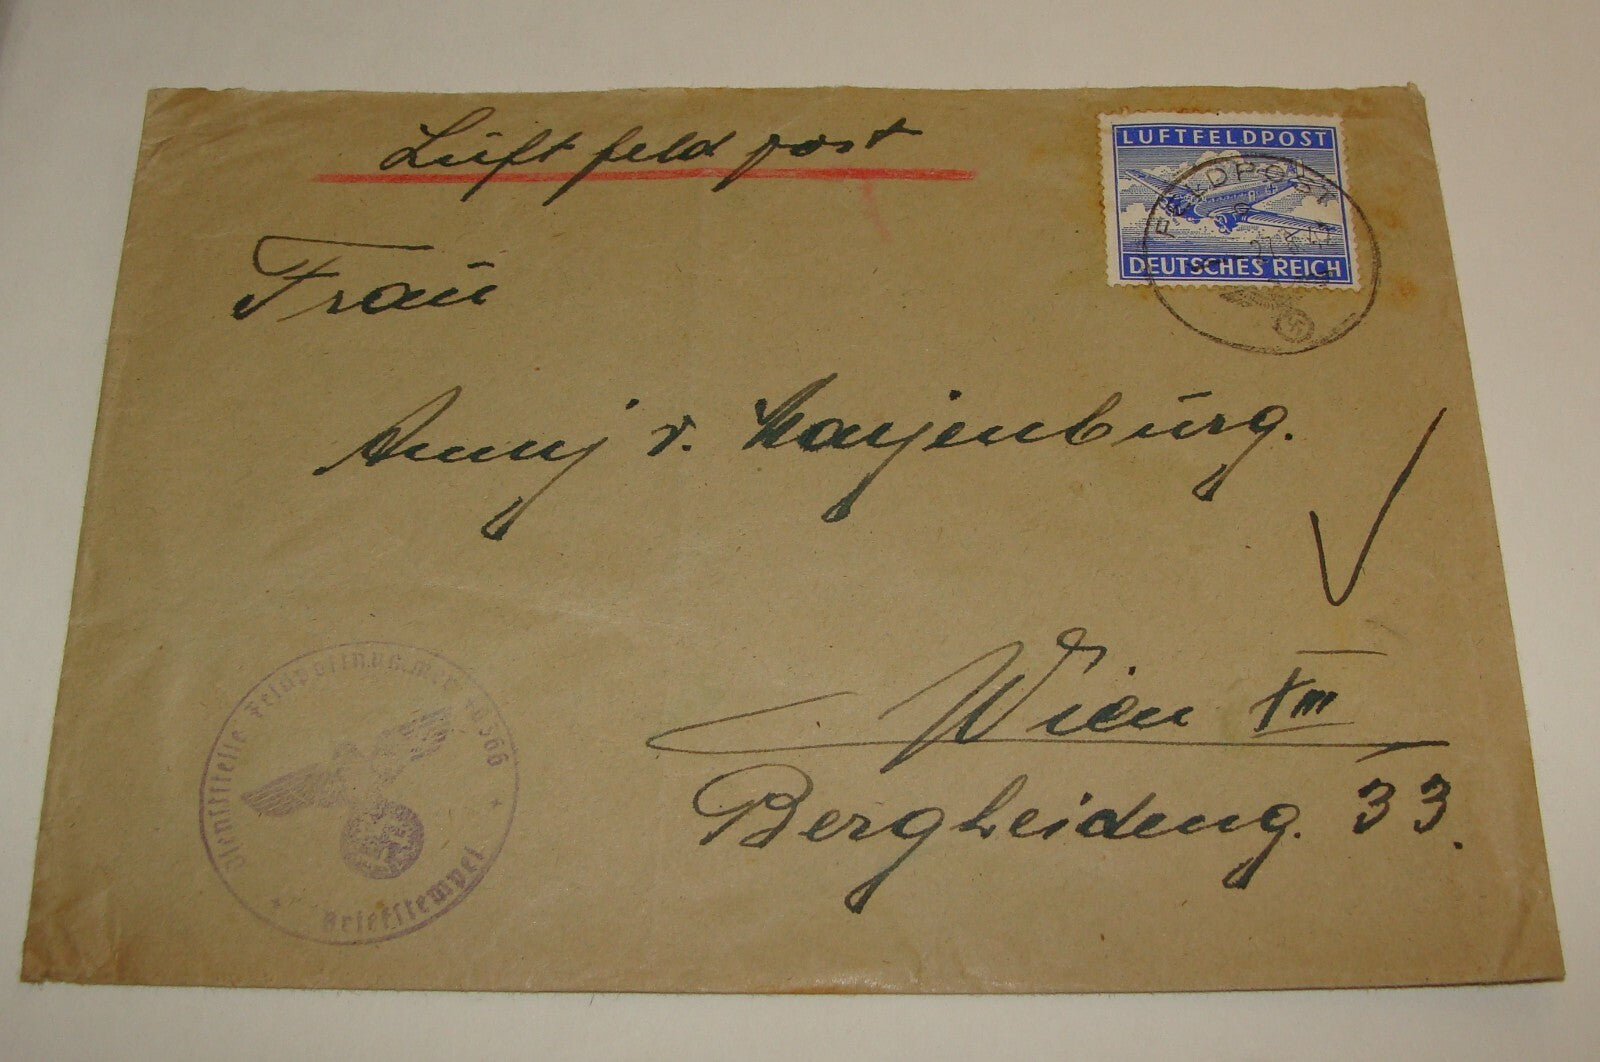 Luftfeldpost
LUFTFELDPOST
DEUTSCHES REICH
FELDPOST
27. 42
Frau
Anny v. Mayenburg.
Wien XIII
Bergheideng. 33.
Dienststelle Feldpostnummer 40366
Briefstempel